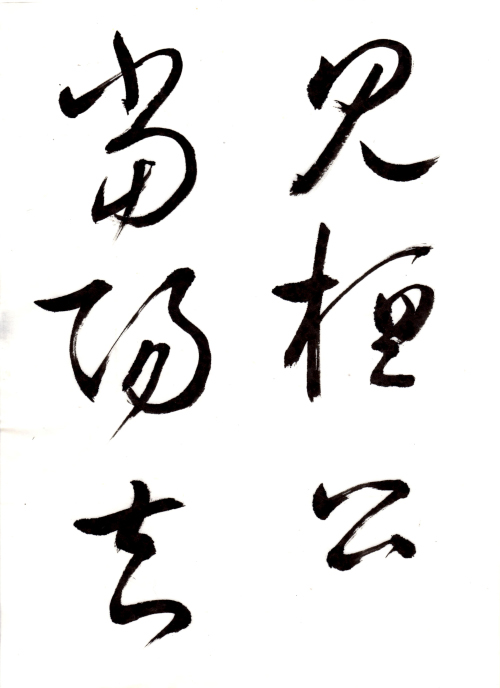 見桓公
當陽去